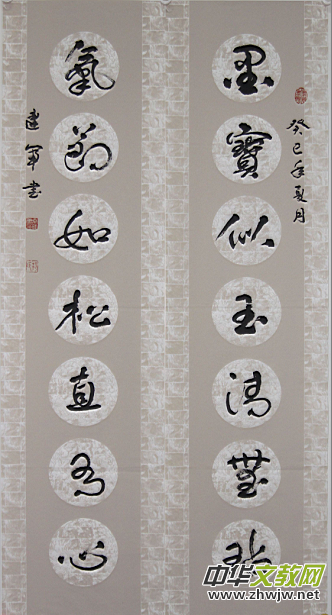 墨寶似玉清無瑕
癸巳年夏月
氣節如松直有心
建軍書
中华文教网
www.zhwjw.net